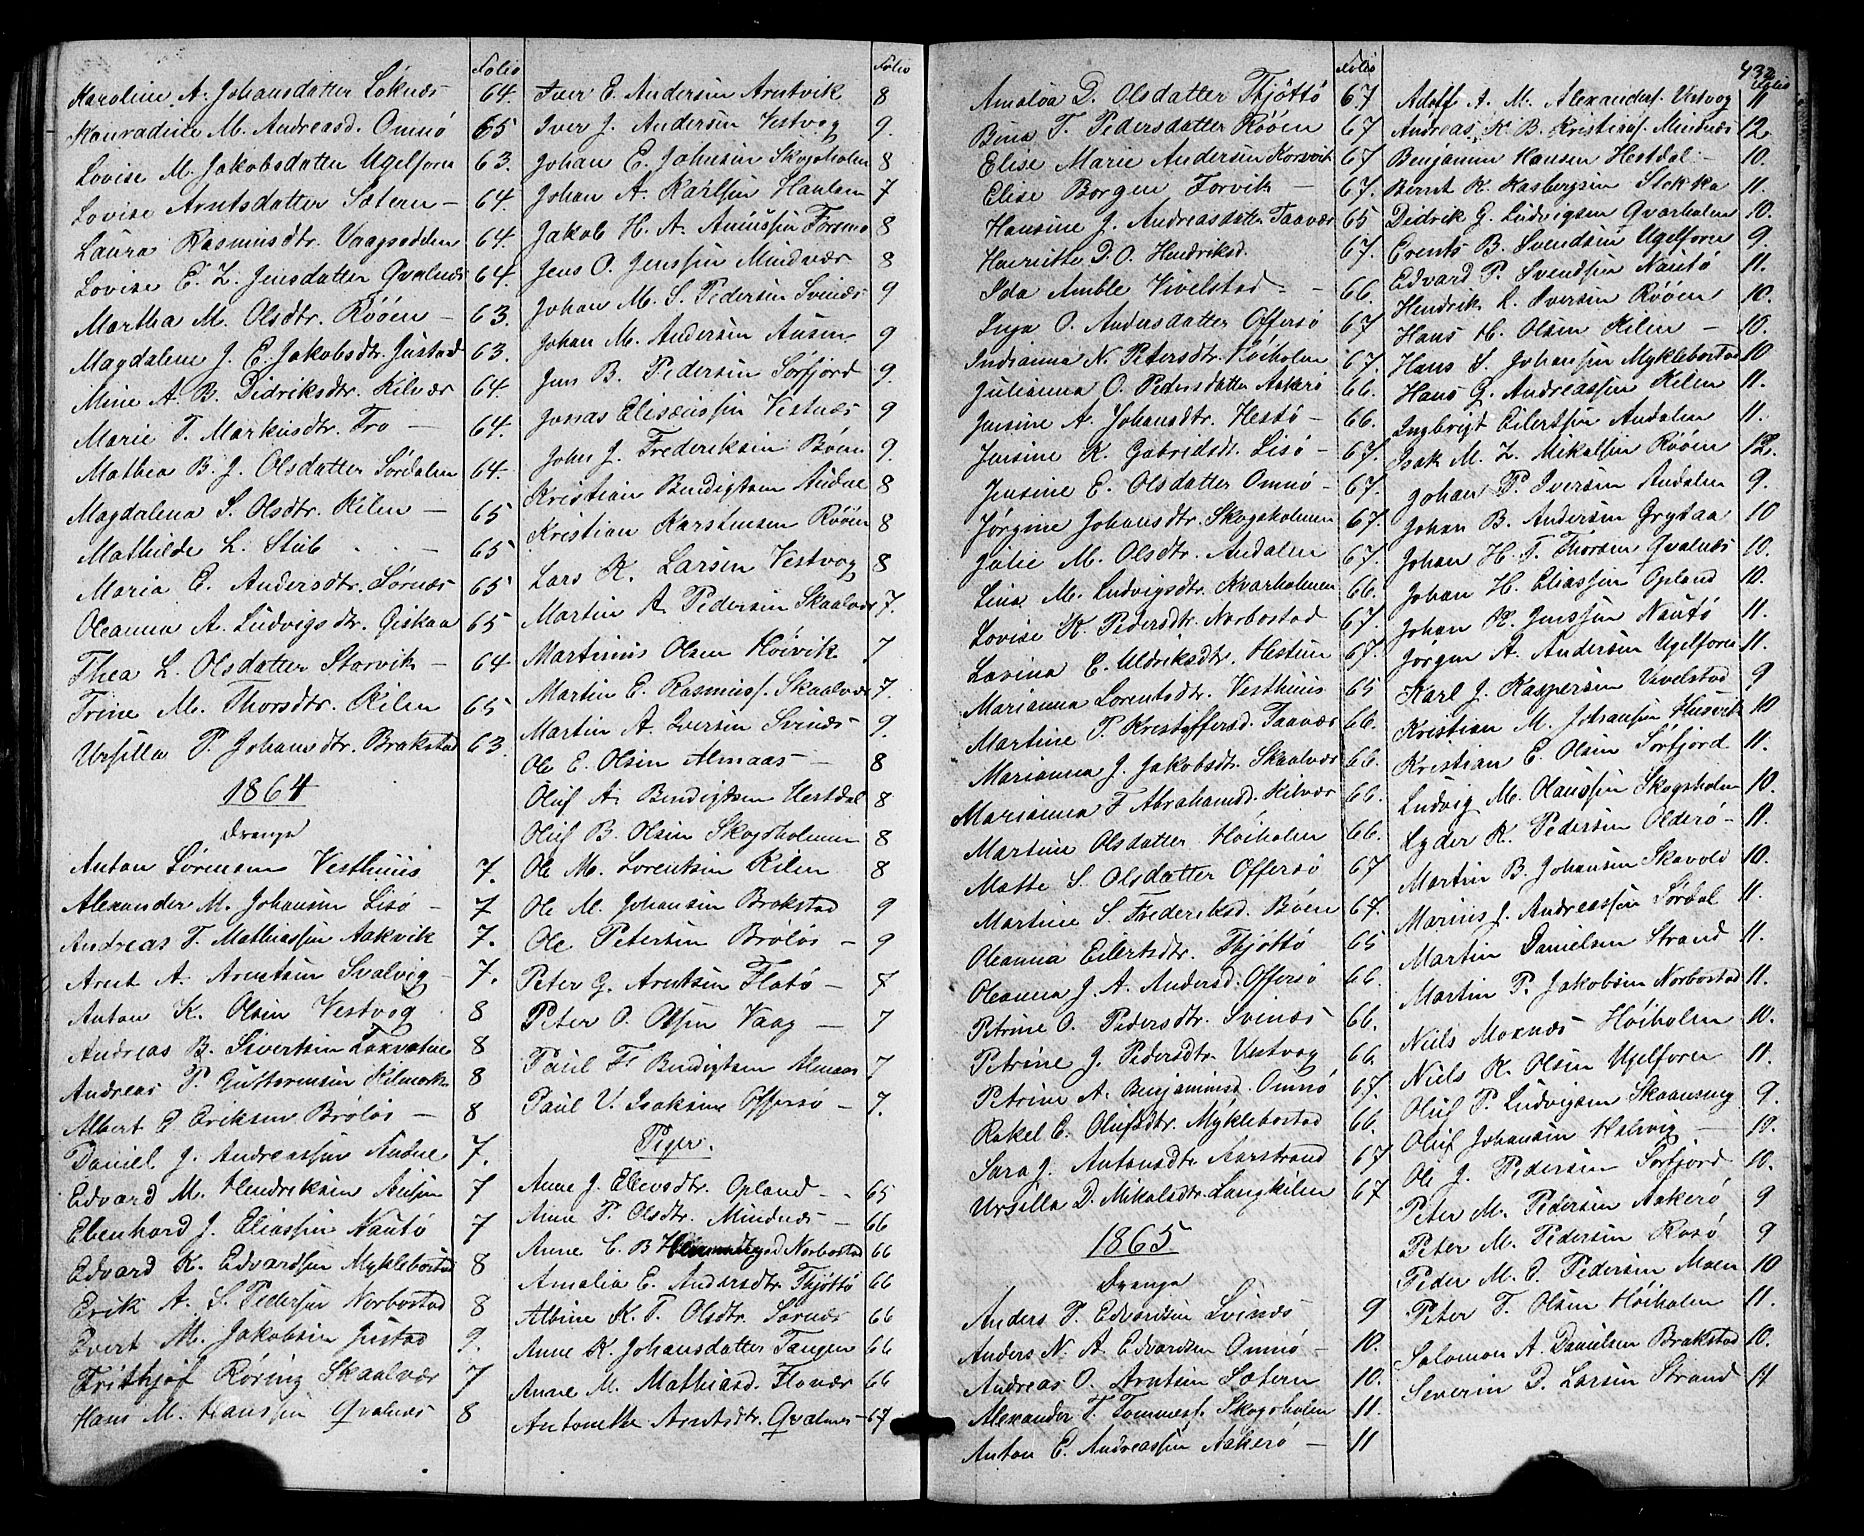 Folio
Karoline A. Johansdatter Løknæs 64.
Konradine M. Andreasd. Omnø 65
Lovise M. Jakobsdatter Ugelforen 63.
Lovise Arntsdatter Sætern – 64.
Laura Rasmusdtr. Vaagsodden 64.
Lovise E. L. Jensdatter Qvalnæs 64.
Martha M. Olsdtr. Røøen – 63.
Magdalene J. E. Jakobsdtr. Justad 63.
Mine A. B. Didriksdtr. Kilvær 64.
Marie T. Markusdtr. Fro – 64.
Mathea B. J. Olsdatter Sørdalen 64.
Magdalena S. Olsdtr. Kilen – 65
Mathilde L. Stub – 65
Maria E. Andersdtr. Sørnæs 65
Oleanna A. Ludvigsdtr. Giskaa 65
Thea L. Olsdatter Storvik – 64
Trine M. Thorsdtr. Kilen 65
Ursilla P. Johansdtr. Brakstad 63.
1864
Drenge
Anton Sørensen Vesthuus 7.
Alexander M. Johansen Lisø – 7
Andreas T. Mathiassen Aakvik 7.
Arnt A. Arntsen Svalvig – 7.
Anton K. Olsen Vestvog 8
Andreas B. Sivertsen 8
Andreas P. Guttormsen 8
Albert E Eriksen Brøløs – 8
Daniel J. Andreassen Audne 7.
Edvard M. Hendriksen Ausen 7
Ebenhard J. Eliassen Nautø 7
Edvard K. Edvardsen Myklebostad 8
Erik A. S. Pedersen Norbostad 8
Evert M. Jakobsen Justad 9.
Frithjof Røring Skaalvær 7
Hans M. Hanssen Qvalnæs 8
Folio
Iver E. Andersen Arntvik 8
Iver J. Andersen Vestvog 9.
Johan E. Johnsen Skogsholm 8
Johan A. Karlsen Haulan 7
Jakob H. A. Aniussen Forsmo 8
Jens O. Jenssen Mindvær 8
Johan M. S. Pedersen Svinæs 9
Johan M. Andersen Ausen 9
Jens B. Pedersen Sørfjord 9.
Jonas Elisæussen Vestnæs 9
John J. Frederiksen Bøen 9.
Kristian Bendigtsen Audne 8
Kristian Karstensen Røøen 8
Lars K. Larsen Vestvog 8
Martin A. Pedersen Skaalvær 7.
Martinus Olsen Høivik 7
Martin E. Rasmuss. Skaalvær 7.
Martin A. Iversen Svinæs – 9.
Ole E. Olsen Almaas – 8
Oluf A. Bendigtsen Hestdal 8
Oluf B. Olsen Skogsholmen 8
Ole M. Lorentsen Kilen 8
Ole M. Johansen Brakstad 9
Ole Petersen Broløs – 9
Peter G. Arntsen Flatø – 7
Peter O. Olsen Vaag – 7
Paul F. Bendigtsen Almaas 7
Paul V. Isaksen Offersø – 7.
Piger.
Anne J. Ellevsdtr. Opland – 65
Anne P. Olsdtr. Mindnæs – 66
Anne C. B. Norbostad 66
Amalia E. Andersdtr. Thjøttø 66
Albine K. P. Olsdtr. Sørnæs 66
Anne K. Johansdatter Tangen 66
Anne M. Mathiasd. Flovær 66
Antonette Arntsdtr. Qvalnæs – 67
Folio
Amaloa D. Olsdatter Thjøttø 67
Bina T. Pedersdatter Røøen 67
Elise Marie Andersen Korsvik 67.
Elise Borgen Forvik – 67.
Hansine J. Andreasdatter Taavær 65
Henriette D. O. Hendriksd. 67.
Ida Amble Vivelstad – 66.
Inga O. Andersdatter Offersø 67
Indianna N. Petersdtr. Høiholm 67.
Julianna O. Pedersdatter Aakerø 66.
Jensine A. Johansdtr. Hestø – 66.
Jensine K. Gabrielsdt. Lisø – 67.
Jensine E. Olsdatter Omnø – 67.
Jørgine Johansdtr. Skogsholmen 67.
Julie M. Olsdtr. Audalen 67.
Lina M. Ludvigsdtr. Kvarholmen 66.
Lovise K. Pedersdtr. Norbostad 67.
Lovina E. Uldriksdtr. Hestun 67.
Marianna Lorentsdtr. Vesthuus 65
Martine P. Krestoffersd. Taavær 66.
Marianna J. Jakobsdtr. Skaalvær 66.
Marianna F. Abrahamsd. Kilvær 66.
Martine Olsdatter Høiholm 66.
Matte S. Olsdatter Offersø 67
Martine S. Frederiksd. Bøen 67.
Oleanna Eilertsdtr. Thjøttø 65
Oleanna J. A. Andersd. Offersø 66.
Petrine O. Pedersdtr. Svinæs 66.
Petrine J. Pedersdtr. Vestvog 66.
Petrine A. Benjaminsd. Omnø 67.
Rakel E. Olufsdtr. Myklebostad 66.
Sara J. Antonsdtr Aarstrand 67
Ursilla D. Mikalsdtr. Langkilen 67
1865
Drenge
Anders P. Edvardsen Svinæs – 9
Anders N. A. Edvardsen Omnø – 10.
Andreas O. Arntsen Sætern 10.
Alexander T. Tommess. Skogsholm 11.
Anton E. Andreassen Aakerø – 11
432
Folio
Adolf A. M. Alexanders. Vestvog 11
Andreas K. B. Kristians. Mindnæs 12.
Benjamin Hansen Hestdal – 10.
Bernt K. Kasbergsen Stokka 11.
Didrik G. Ludvigsen Qvarholm 10.
Erents B. Svendsen Ugelforen 9.
Edvard P. Svendsen Nautø 11.
Hendrik L. Iversen Røøen 10.
Hans H. Olsen Kilen – 10.
Hans S. Johansen Myklebostad 10
Hans G. Andreassen Kilen 11.
Ingbrigt Eilertsen Audalen 11.
Isak M. L. Mikalsen Røøen 12.
Johan P. Iversen Audalen 9.
Johan B. Andersen Grytaa 10
Johan H. T. Thorsen Qvalnæs 10.
Johan H. Eliassen Opland 10.
Johan K. Jenssen Nautø 11.
Jørgen A. Andersen Ugelforen 11.
Karl J. Kaspersen Vevelstad 9
Kristian M. Johansen Husvik 10
Kristian E. Olsen Sørfjord 11.
Ludvig M. Olaussen Skogsholm 10.
Lyder K. Pedersen Olderø – 11.
Martin B. Johansen Skavold 10.
Marius J. Andreassen Sørdal 11.
Martin Danielsen Strand 11.
Martin P. Jakobsen Norbostad 11.
Niels Moxnæs Høiholm 10.
Niels K. Olsen Ugelforen 11.
Oluf P. Ludvigsen 9.
Oluf Johansen Halsvig – 10.
Ole J. Pedersen Sørfjord 10.
Peter M. Pedersen Aakerø 9
Peter M. Pedersen Rosø 9
Peder M. O. Pedersen Moen 10
Peter T. Olsen Høiholm 11.
Salomon A. Danielsen Brakstad 10.
Severin D. Larsen Strand 11